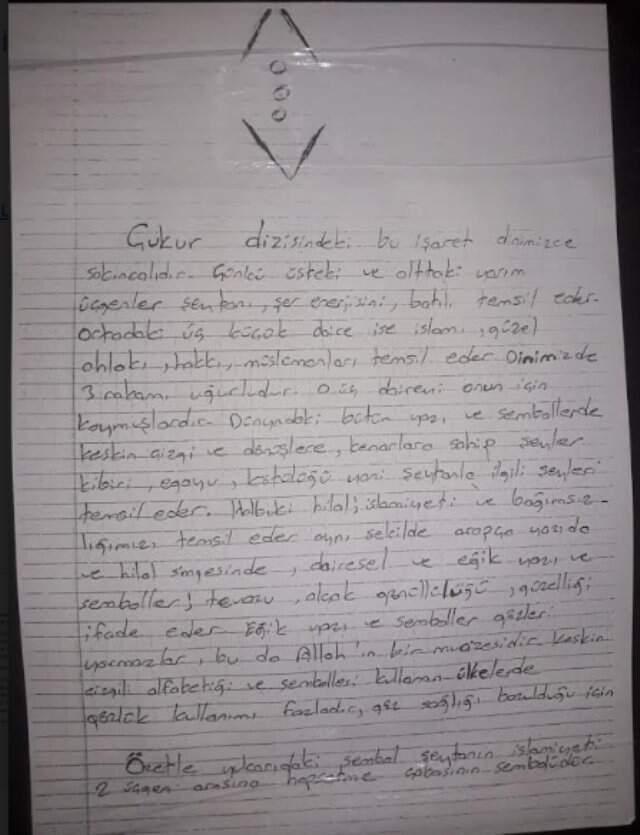 Çukur dizisindeki bu işaret dinimizce
sakıncalıdır. Çünkü üsteki ve alttaki yarım
üçgenler şeytanı, şer enerjisini, batılı temsil eder.
Ortadaki üç küçük daire ise islamı, güzel
ahlakı, hakkı, müslümanları temsil eder. Dinimizde
3 rakamı uğurludur. O üç daireni onun için
koymuşlardır. Dünyadaki bütün yazı ve sembollerde
keskin çizgi ve dönüşlere, kenarlara sahip şeyler
kibiri, egoyu, kötülüğü yani şeytanla ilgili şeyleri
temsil eder. Halbuki hilal; islamiyeti ve bağımsız-
lığımızı temsil eder aynı şekilde arapça yazıda
ve hilal simgesinde, dairesel ve eğik yazı ve
semboller; tevazu, alçak gönüllülüğü, güzelliği
ifade eder. Eğik yazı ve semboller gözleri
yormazlar, bu da Allah'ın bir mucizesidir. Keskin
çizgili alfabetiği ve sembolleri kullanan ülkelerde
gözlük kullanımı fazladır, göz sağlığı bozulduğu için
Özetle yukarıdaki sembol şeytanın islamiyeti
2 üçgen arasına hapsetme çabasının sembolüdür